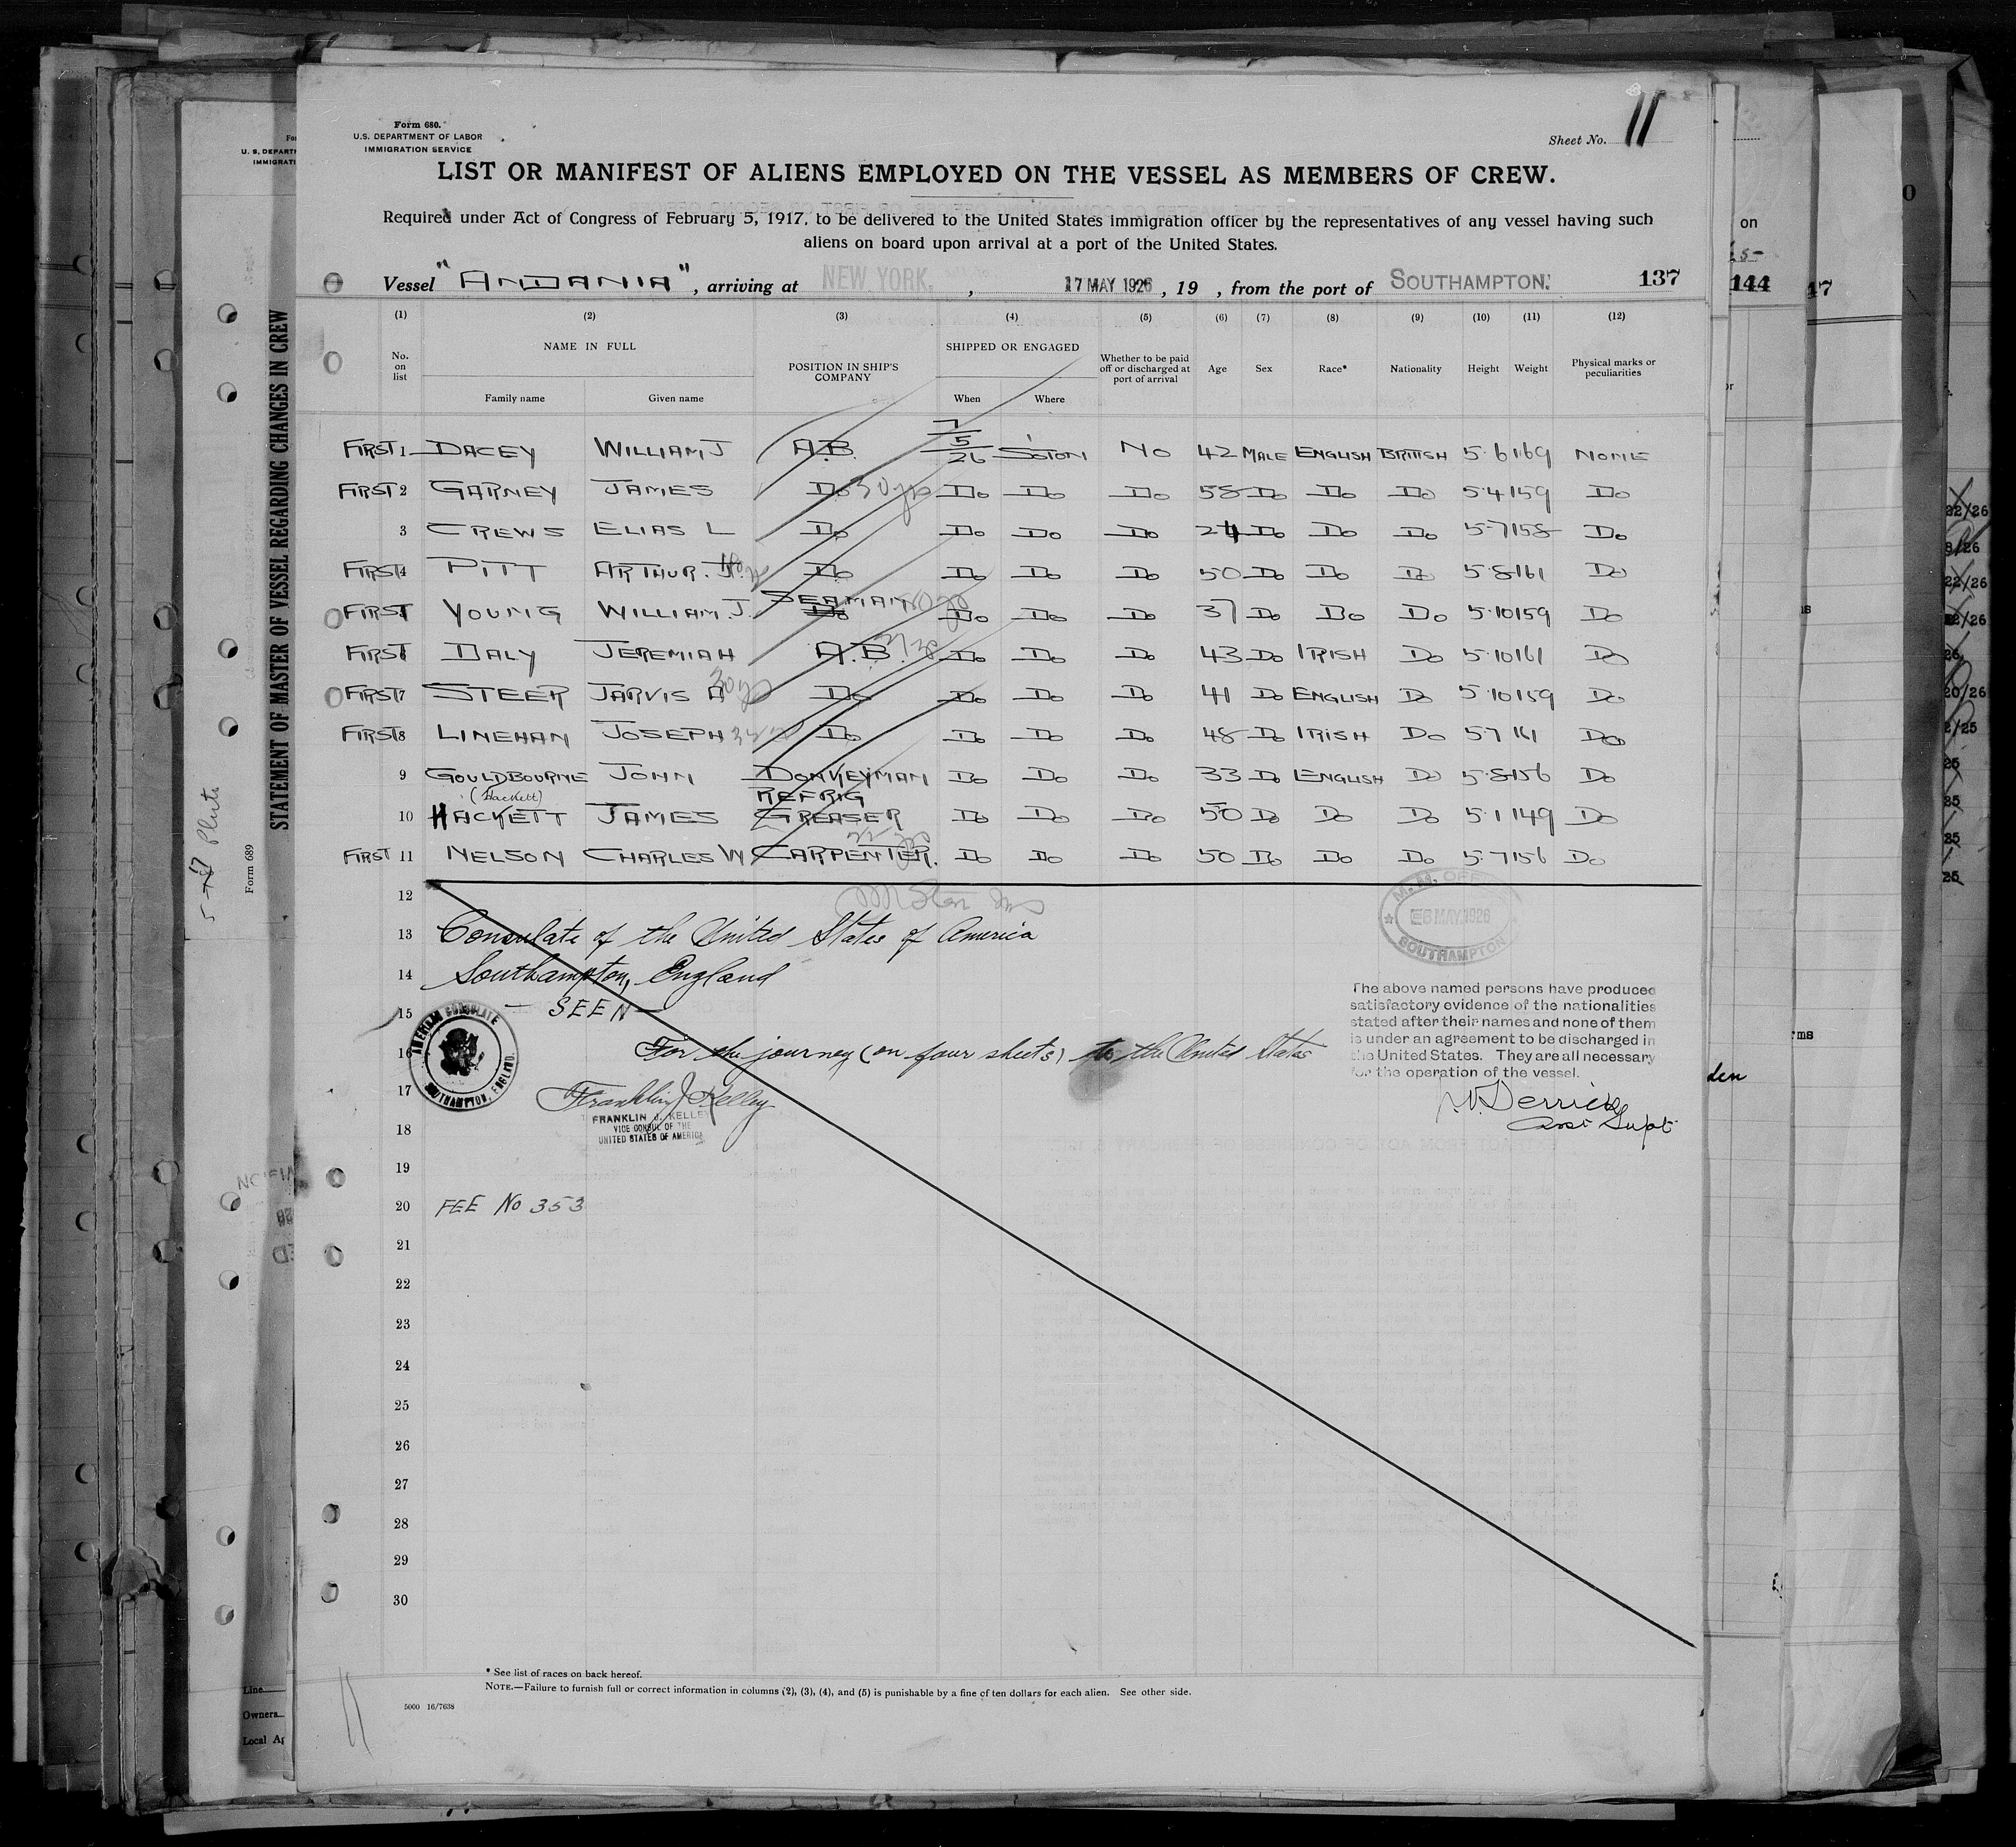 Form 680.
U.S. DEPARTMENT OF LABOR
IMMIGRATION SERVICE
Sheet No. 11
LIST OR MANIFEST OF ALIENS EMPLOYED ON THE VESSEL AS MEMBERS OF CREW.
Required under Act of Congress of February 5, 1917, to be delivered to the United States immigration officer by the representatives of any vessel having such
aliens on board upon arrival at a port of the United States.
Vessel "ANDANIA", arriving at NEW YORK, 17 MAY 1926, 19 , from the port of SOUTHAMPTON. 137
(1) (2) (3) (4) (5) (6) (7) (8) (9) (10) (11) (12)
No. on list NAME IN FULL POSITION IN SHIP'S COMPANY SHIPPED OR ENGAGED Whether to be paid off or discharged at port of arrival Age Sex Race* Nationality Height Weight Physical marks or peculiarities
Family name Given name When Where
FIRST 1 DACEY WILLIAM J A.B. 7/5/26 S'OTON NO 42 MALE ENGLISH BRITISH 5.6 169 NONE
FIRST 2 GARNEY JAMES DO DO DO DO 58 DO DO DO 5.4 159 DO
3 CREWS ELIAS L DO DO DO DO 24 DO DO DO 5.7 158 DO
FIRST 4 PITT ARTHUR. J. DO DO DO DO 50 DO DO DO 5.8 161 DO
FIRST YOUNG WILLIAM. J. SEAMAN DO DO DO 37 DO DO DO 5.10 159 DO
FIRST DALY JEREMIAH A.B. DO DO DO 43 DO IRISH DO 5.10 161 DO
FIRST 7 STEER JARVIS A DO DO DO DO 41 DO ENGLISH DO 5.10 159 DO
FIRST 8 LINEHAN JOSEPH DO DO DO DO 48 DO IRISH DO 5.7 161 DO
9 GOULDBOURNE JOHN DONKEYMAN DO DO DO 33 DO ENGLISH DO 5.8 156 DO
(Hackett) REFRIG
10 HACKETT JAMES GREASER DO DO DO 50 DO DO DO 5.1 149 DO
FIRST 11 NELSON CHARLES W CARPENTER. DO DO DO 50 DO DO DO 5.7 156 DO
12
13 Consulate of the United States of America
14 Southampton, England
15 — SEEN —
16 For the journey (on four sheets) to the United States
17 Franklin J Kelley
FRANKLIN J. KELLEY
VICE CONSUL OF THE
UNITED STATES OF AMERICA
18
19
20 FEE No 353
21
22
23
24
25
26
27
28
29
30
AMERICAN CONSULATE
SOUTHAMPTON, ENGLAND.
M. M. OFFICE
6 MAY 1926
SOUTHAMPTON
The above named persons have produced
satisfactory evidence of the nationalities
stated after their names and none of them
is under an agreement to be discharged in
the United States. They are all necessary
for the operation of the vessel.
Derrick
Asst Supt.
* See list of races on back hereof.
NOTE.—Failure to furnish full or correct information in columns (2), (3), (4), and (5) is punishable by a fine of ten dollars for each alien. See other side.
5000 16/7638
11
STATEMENT OF MASTER OF VESSEL REGARDING CHANGES IN CREW
Form 689
U. S. DEPART
IMMIGRATI
Line
Owners
Local Ag
on
144
47